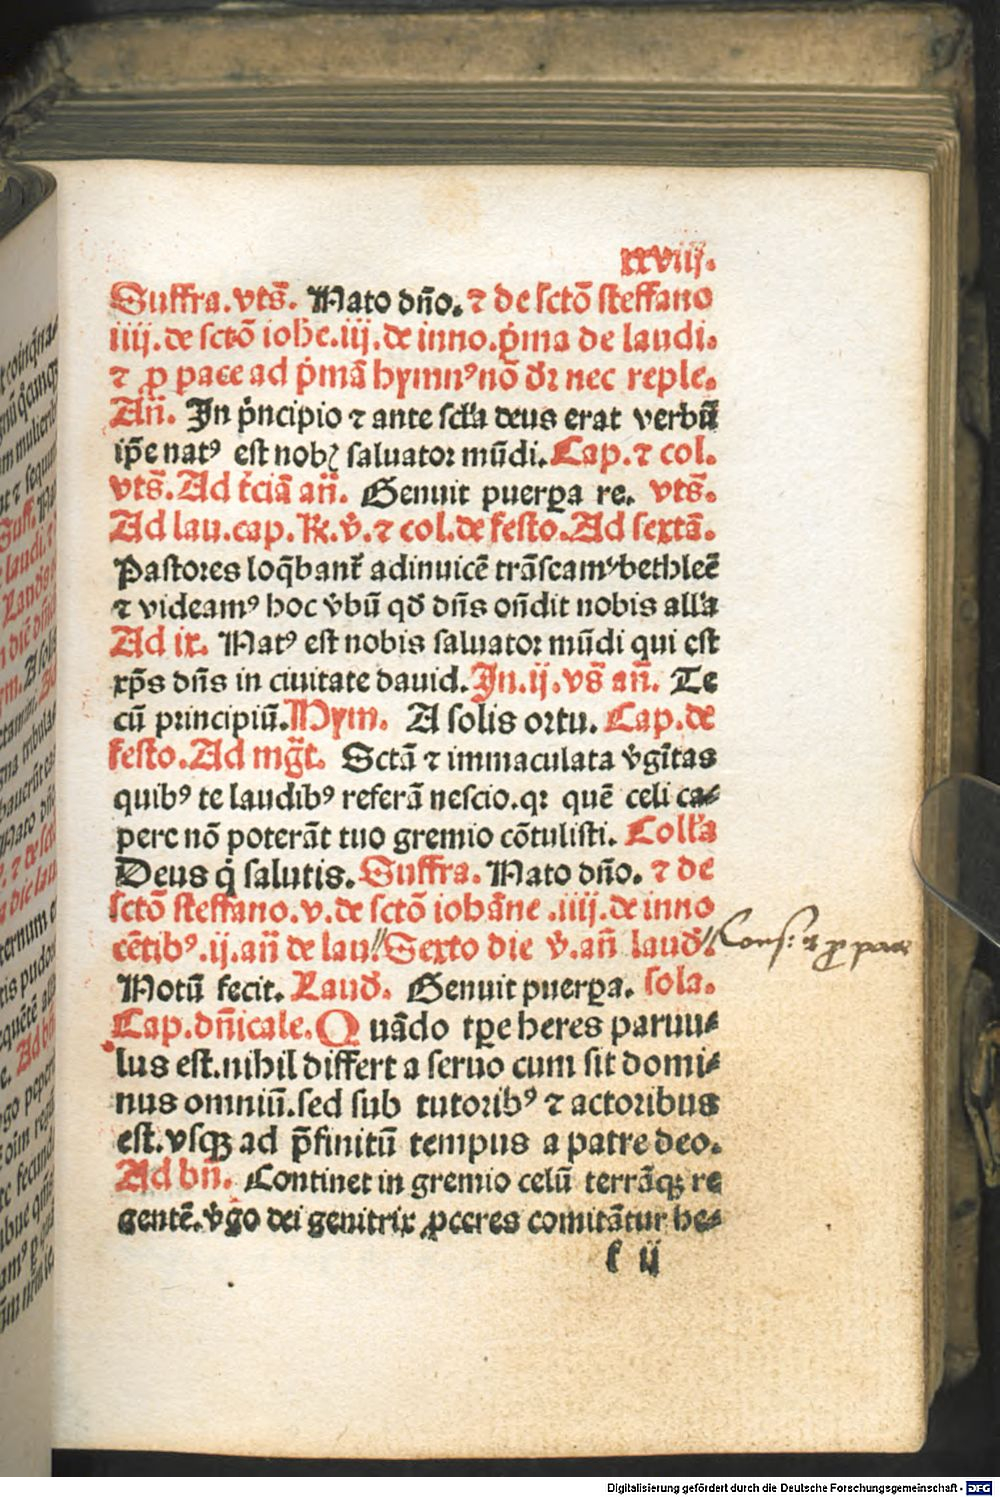 xxviij.
Suffra. vts̄. Nato dn̄o. ⁊ de sctō steffano
iiij. de sctō iohe. iij. de inno. p̄ma de laudi.
⁊ ꝓ pace ad p̄mā hymnꝰ nō dꝛ nec reple.
An̄. In p̄ncipio ⁊ ante scl̄a deus erat verbū
ip̄e natꝰ est nobꝭ saluatoꝛ mūdi. Cap. ⁊ col.
vts̄. Ad t̄ciā an̄. Genuit puerꝑa re. vts̄.
Ad lau. cap. ℟. v̄. ⁊ col. de festo. Ad sextā.
Pastoꝛes loq̄bant᷑ adinuicē trāseamꝰ bethleē
⁊ videamꝰ hoc v̄bū qd̄ dn̄s on̄dit nobis all'a
Ad ix. Natꝰ est nobis saluatoꝛ mūdi qui est
xp̄s dn̄s in ciuitate dauid. In. ij. vs̄ an̄. Te
cū principiū. Hym. A solis ortu. Cap. de
festo. Ad mḡt. Sctā ⁊ immaculata v̄gītas
quibꝰ te laudibꝰ referā nescio. qꝛ quē celi ca⸗
pere nō poterāt tuo gremio cōtulisti. Coll'a
Deus q̄ salutis. Suffra. Nato dn̄o. ⁊ de
sctō steffano. v. de sctō iohāne. iiij. de inno
cētibꝰ. ij. an̄ de lau // Sexto die v̄. an̄ laud̄. //
Cons: ⁊ ꝓ pace
Notū fecit. Laud̄. Genuit puerꝑa. sola.
Cap. dn̄icale. Quādo tp̄e heres paruu⸗
lus est. nihil differt a seruo cum sit domi⸗
nus omniū. sed sub tutoꝛibꝰ ⁊ actoꝛibus
est. vsqꝫ ad p̄finitū tempus a patre deo.
Ad bn̄. Continet in gremio celū terrāqꝫ re
gentē. v̄go dei genitrix ꝓceres comitātur he⸗
ij
Digitalisierung gefördert durch die Deutsche Forschungsgemeinschaft - DFG